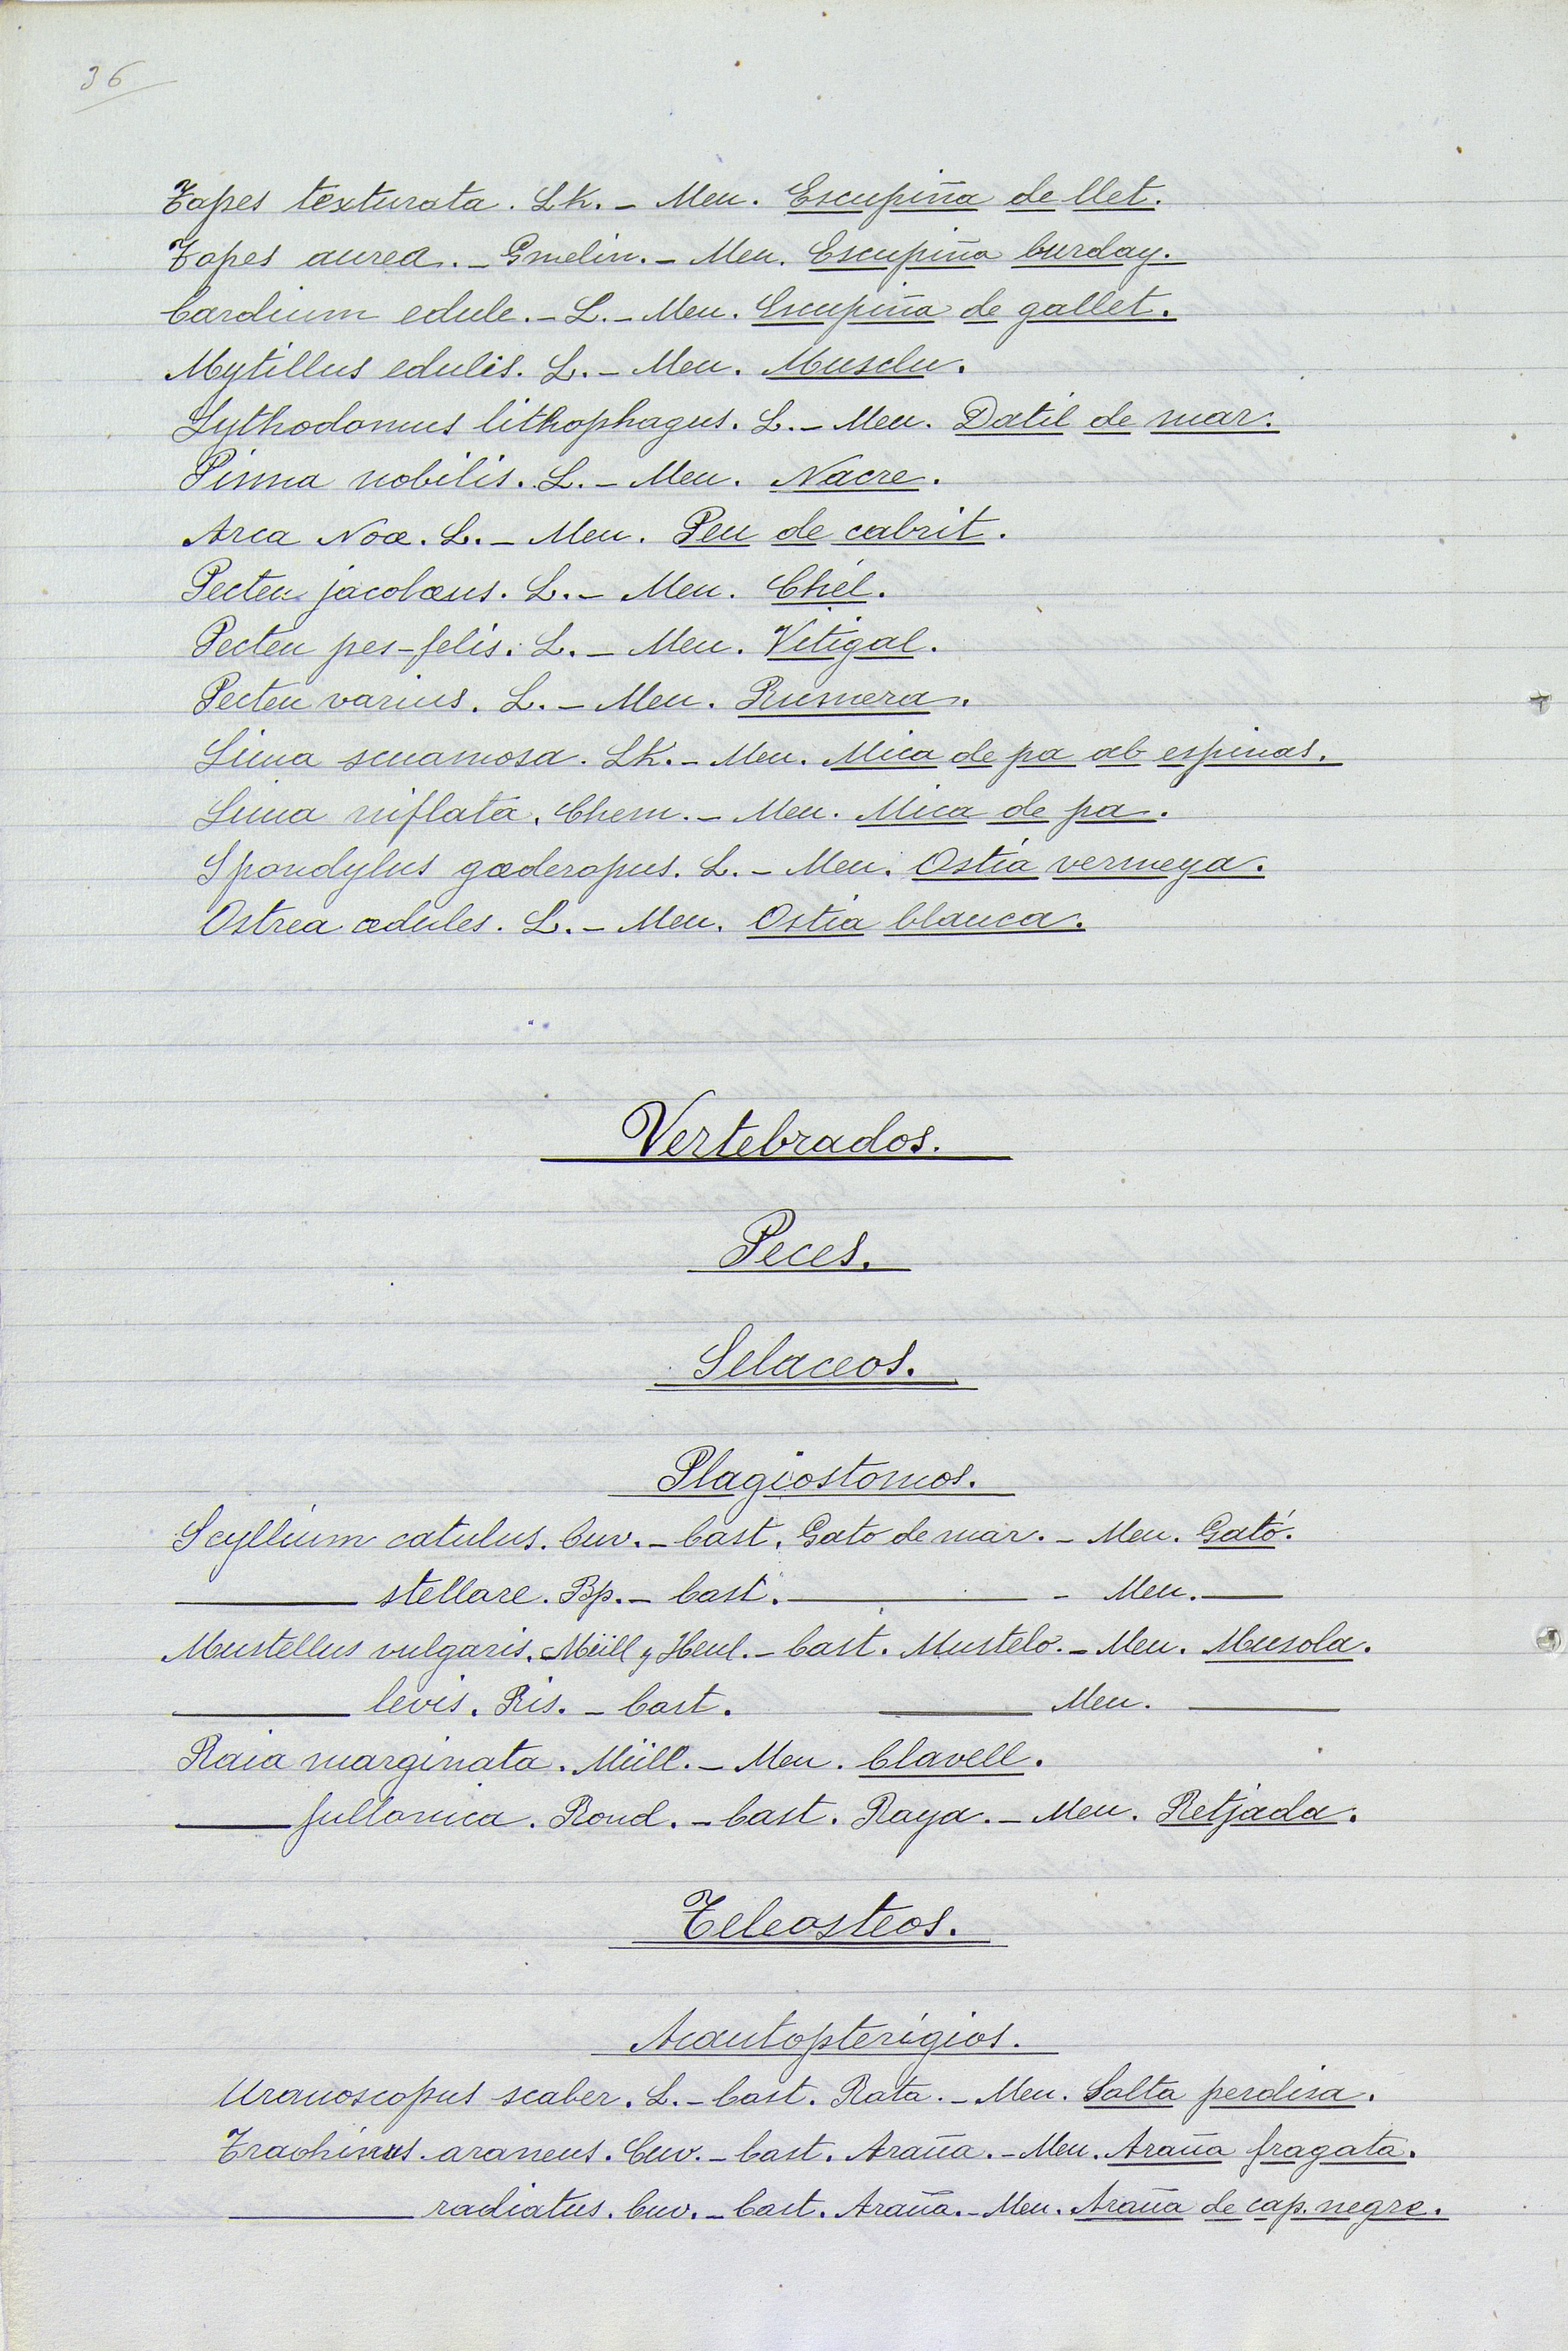 36
Tapes texturata. Lk. - Men. Escupiña de llet.
Tapes aurea. - Gmelin. - Men. Escupiña burday.
Cardium edule. - L. - Men. Escupiña de gallet.
Mytillus edulis. L. - Men. Musclu.
Lythodomus lithophagus. L. - Men. Datil de mar.
Pinna nobilis. L. - Men. Nacre.
Arca Noæ. L. - Men. Peu de cabrit.
Pecten jacobæus. L. - Men. Chél.
Pecten pes-felis. L. - Men. Vitigal.
Pecten varius. L. - Men. Rumera.
Lima scuamosa. Lk. - Men. Mica de pa ab espinas.
Lima inflata. Chem. - Men. Mica de pa.
Spondylus gæderopus. L. - Men. Ostia vermeya.
Ostrea ædules. L. - Men. Ostia blanca.
Vertebrados.
Peces.
Selaceos.
Plagiostomos.
Scyllium catulus. Cuv. - Cast. Gato de mar. - Men. Gató.
——— stellare. Bp. - Cast. ——— - Men. ———
Mustellus vulgaris. Müll y Henl. - Cast. Mustelo. - Men. Musola.
——— levis. Ris. - Cast. ——— Men. ———
Raia marginata. Müll. - Men. Clavell.
——— fullonica. Rond. - Cast. Raya. - Men. Retjada.
Teleosteos.
Acantopterigios.
Uranoscopus scaber. L. - Cast. Rata. - Men. Salta perdisa.
Trachinus araneus. Cuv. - Cast. Araña. - Men. Araña fragata.
——— radiatus. Cuv. - Cast. Araña. - Men. Araña de cap. negre.